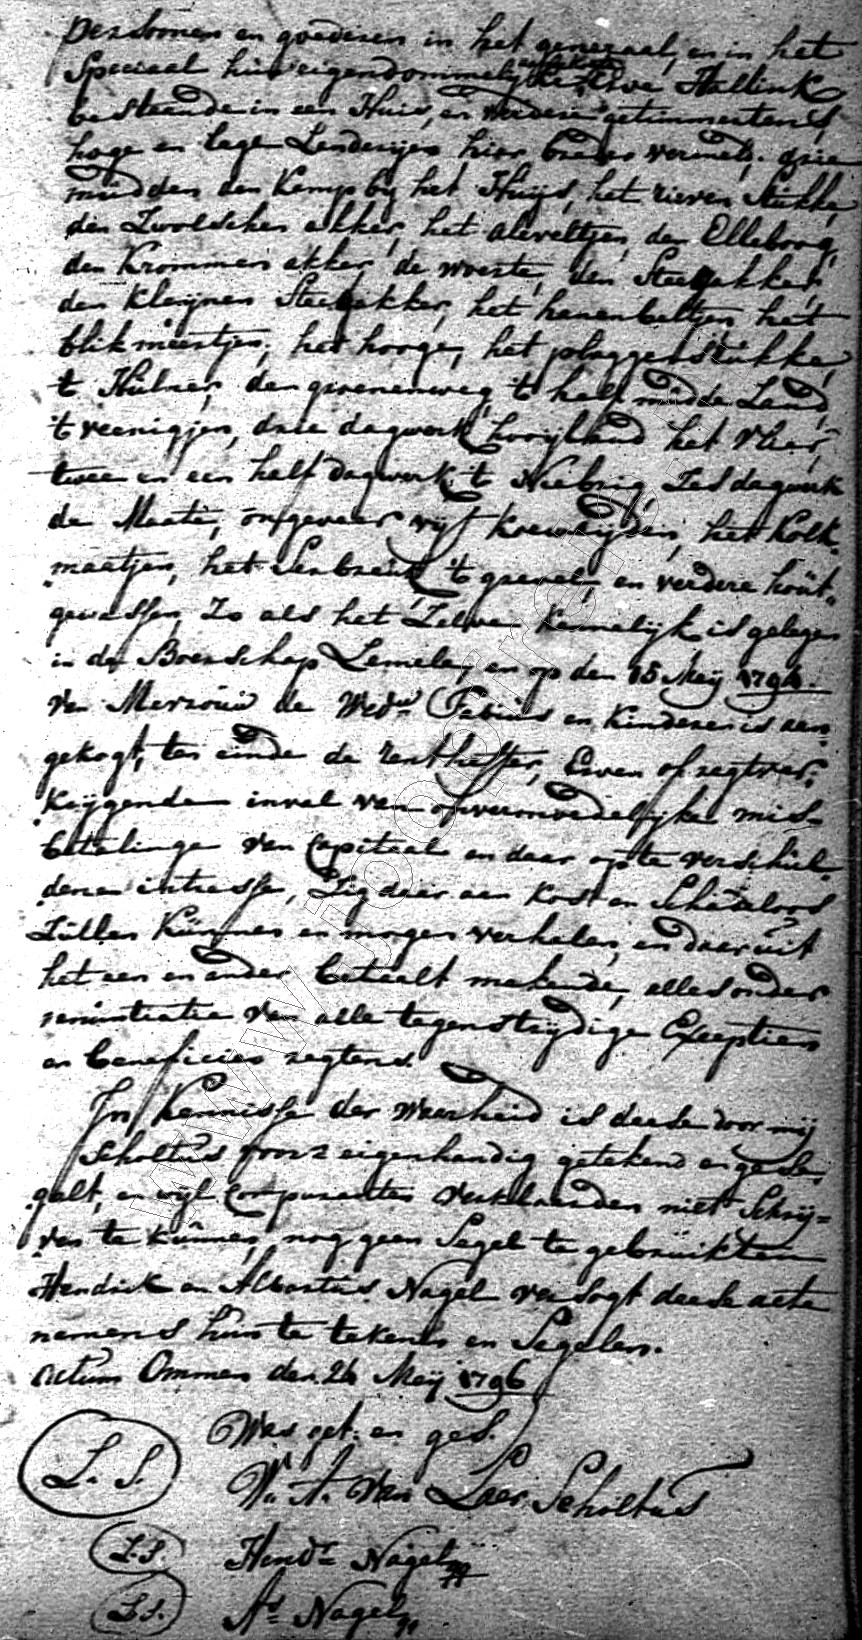 Persoonen en goederen in het generaal, en in het
Speciaal hun eigendommelijke Erve Hallink
bestaande in een Huis, en verdere getimmertens,
hoge en lage Landerijen hier breder vermeld,
midden den Kamp by het Huijs, het rieven Stukke,
den Zwolschen akker, het aleveltjen, den Elleboog,
den Krommen akker, de woeste, den Steegakker,
den Kleijnen Steegakker, het hanenbeltjen het
blikmeertjen, het hooge, het plaggenstukke,
't Hulner, den groenenweg, 't half midde Land,
't veenigjen, drie dagwerk hooijland het Vlier,
twee en een half dagwerk 't Niebrig, Zes dagwerk
de Maate, ongeveer vijf Koeweijden, het Kolk-
maatjen, het 't greenel, en verdere hout-
gewassen, Zo als het Zelve Kennelijk is gelegen
in de Boerschap Lemele, en op den 15 Meij 1794.
van Mevrouw de Wedw. Fabius en Kinderen is aan-
gekogt, ten einde de rentheffer, Erven of regtver-
krijgende inval van onvermoedelijke mis-
betalinge van Capitaal en daar op te verschul-
dene intresse, Zig daar aan kost en Schadeloos
Zullen Kunnen en mogen verhalen, en daar uit
het een en ander betaalt makende, alles onder
renuntiatie van alle tegenstrijdige Exceptien
en beneficien regtens.
In Kennisse der waarheid is deese door mij
Scholtus voorz eigenhandig getekend en gese-
gelt, en wijl Comparanten verklaarden niet Schrij-
ven te kunnen, nog geen Segel te gebruikten
Hendrik en Albartus Nagel versogt deese acte
namens hun te tekenen en Segelen.
Actum Ommen den 26 Meij 1796
Was get: en ges.
L. S. W. A. Van Laer Scholtus
L.S. Hendr. Nagel
L.S. As. Nagel